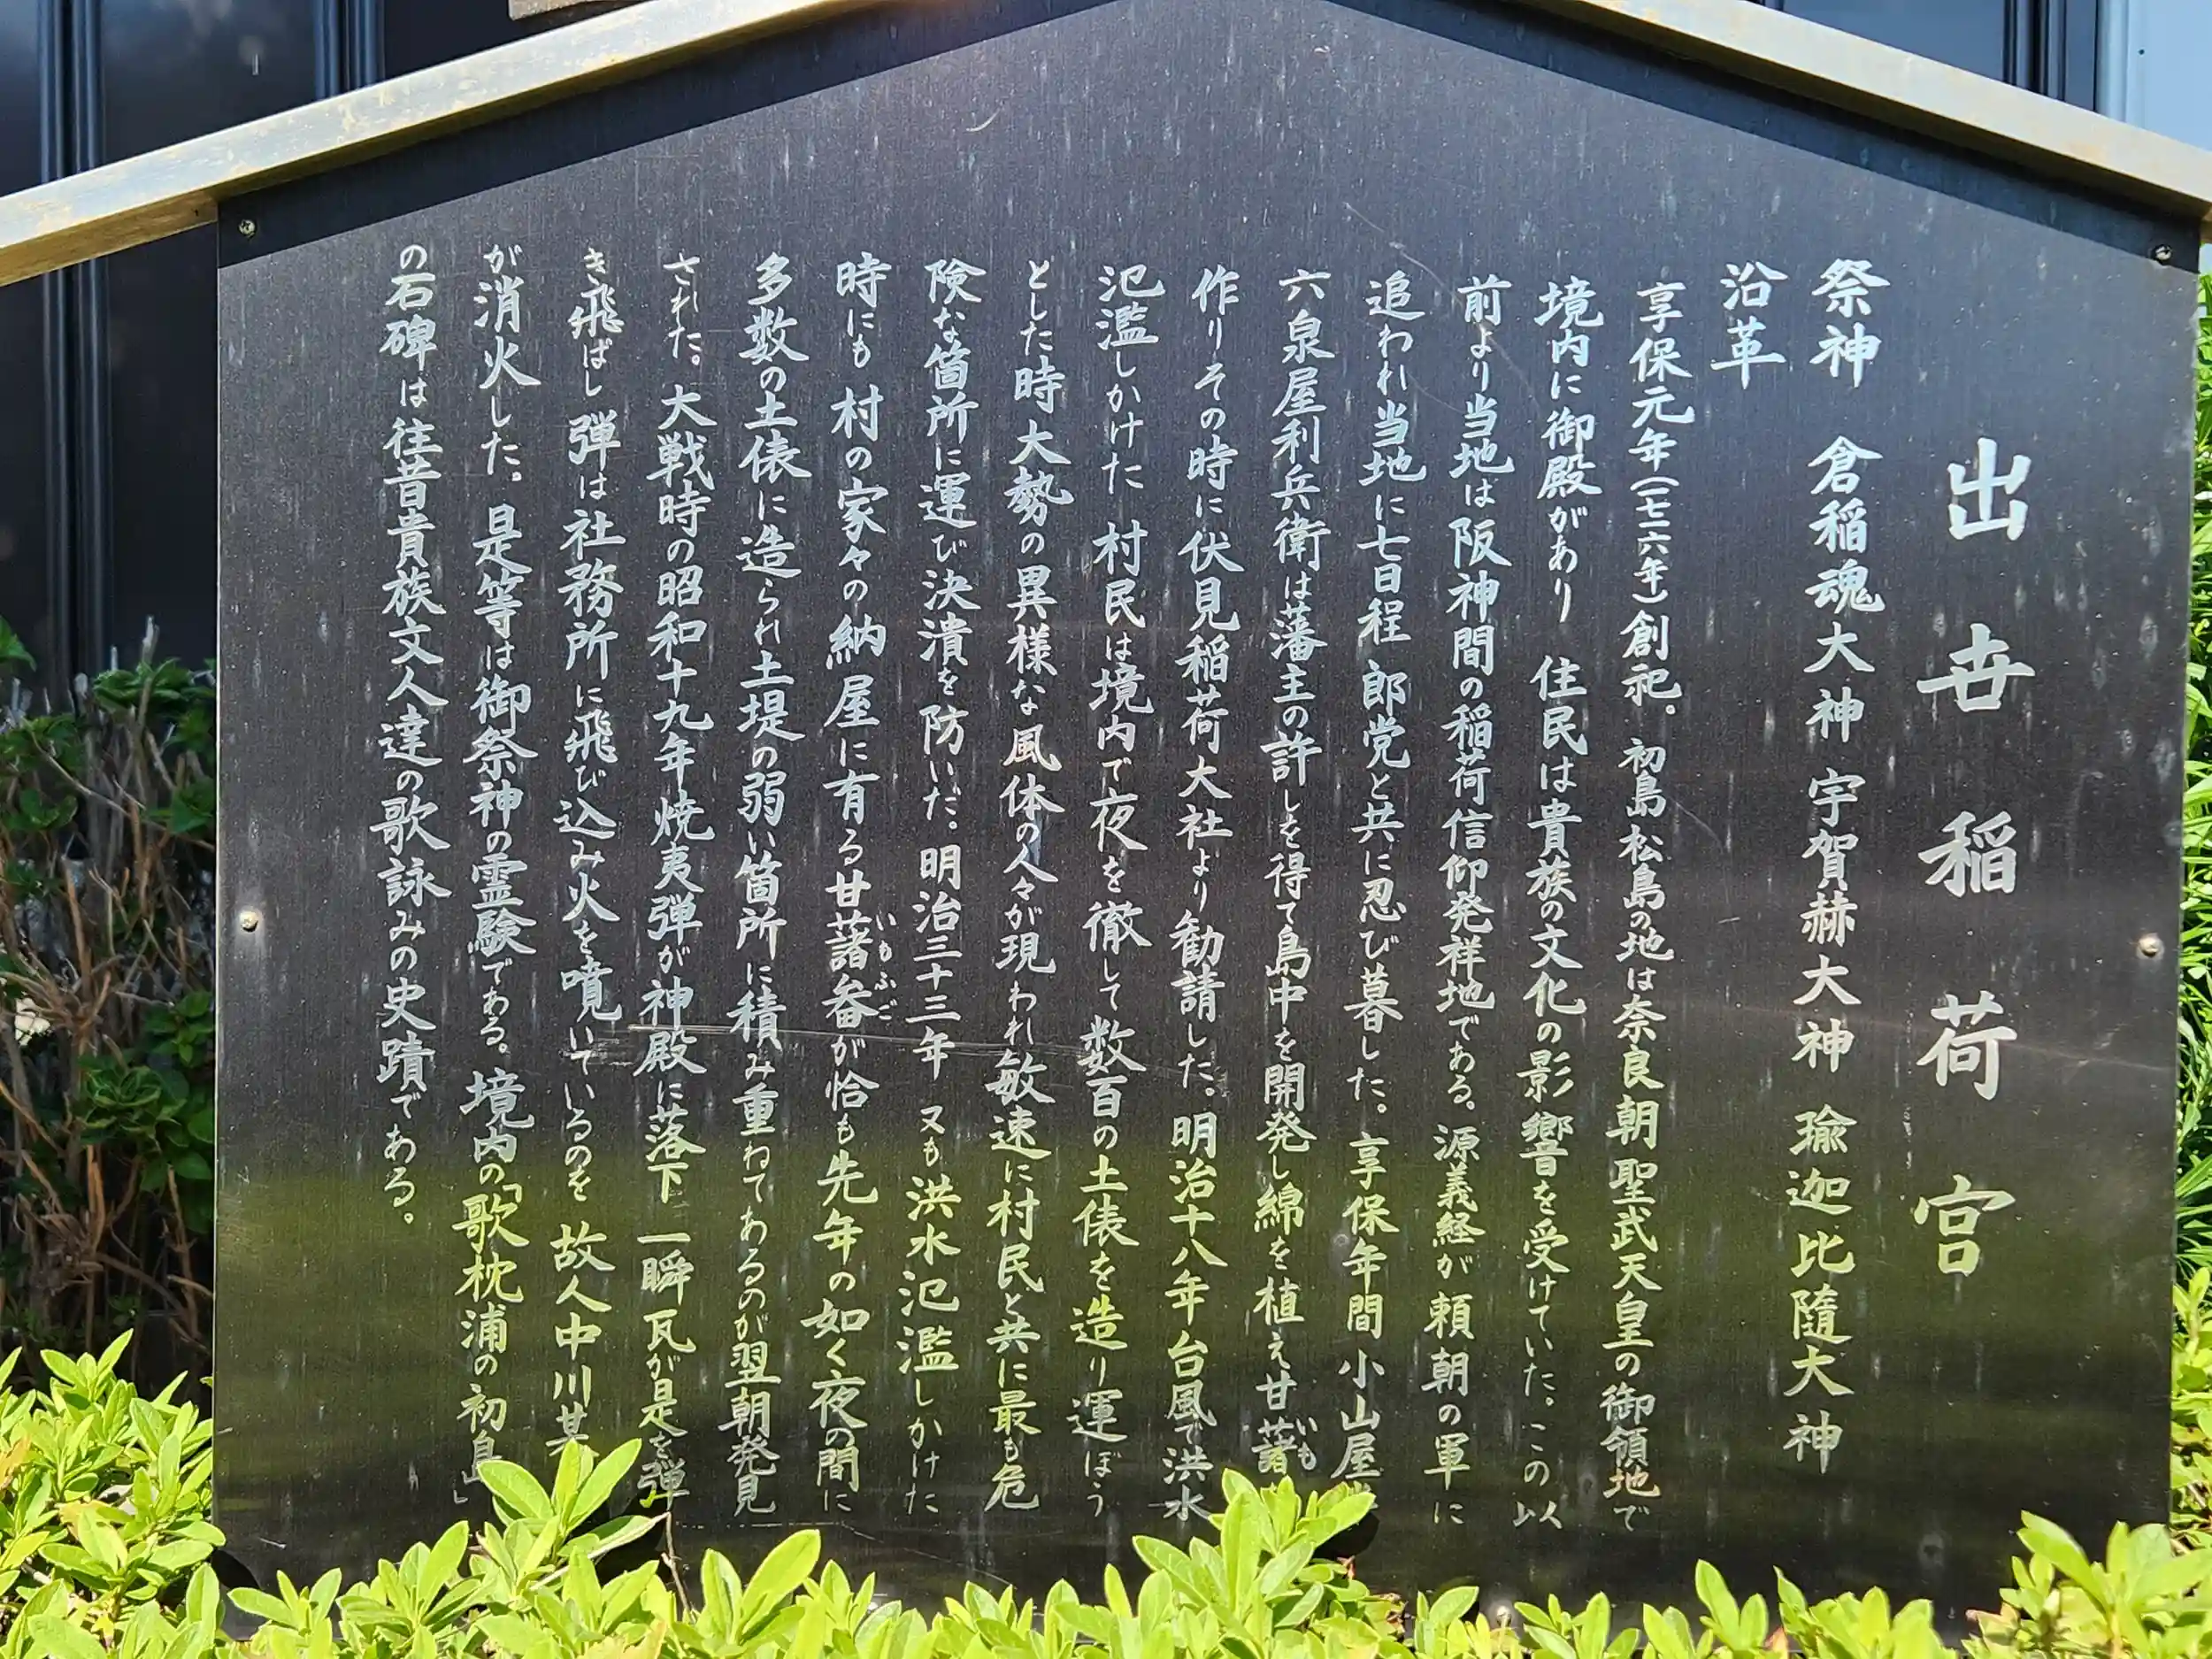 出世稲荷宮
祭神 倉稲魂大神 宇賀赫大神 瑜迦比隨大神
沿革
享保元年(一七一六年)創祀。初島松島の地は奈良朝聖武天皇の御領地で
境内に御殿があり 住民は貴族の文化の影響を受けていた。この以
前より当地は阪神間の稲荷信仰発祥地である。源義経が頼朝の軍に
追われ当地に七日程 郎党と共に忍び暮した。享保年間 小山屋
六泉屋利兵衛は藩主の許しを得て島中を開発し綿を植え甘藷いも
作りその時に伏見稲荷大社より勧請した。明治十八年台風で洪水
氾濫しかけた 村民は境内で夜を徹して数百の土俵を造り運ぼう
とした時大勢の異様な風体の人々が現われ敏速に村民と共に最も危
険な箇所に運び決潰を防いだ。明治三十三年 又も洪水氾濫しかけた
時にも 村の家々の納屋に有る甘藷畚いもふごが恰も先年の如く夜の間に
多数の土俵に造られ土堤の弱い箇所に積み重ねてあるのが翌朝発見
された。大戦時の昭和十九年焼夷弾が神殿に落下 一瞬瓦が是を弾
き飛ばし弾は社務所に飛び込み火を噴いているのを 故人中川某
が消火した。是等は御祭神の霊験である。境内の「歌枕浦の初島」
の石碑は往昔貴族文人達の歌詠みの史蹟である。